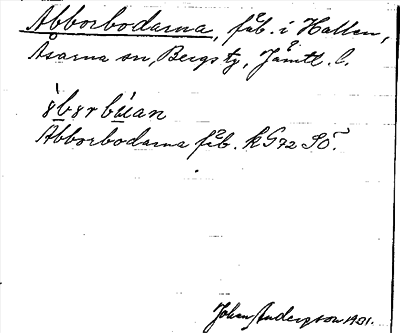 Abborbodarna, fäb. i Hallen,
Åsarna sn, Bergs tg, Jämtl. l.
àbərbúan
Abborbodarna fäb. k G72 SÖ.
Johan Anderson 1901.